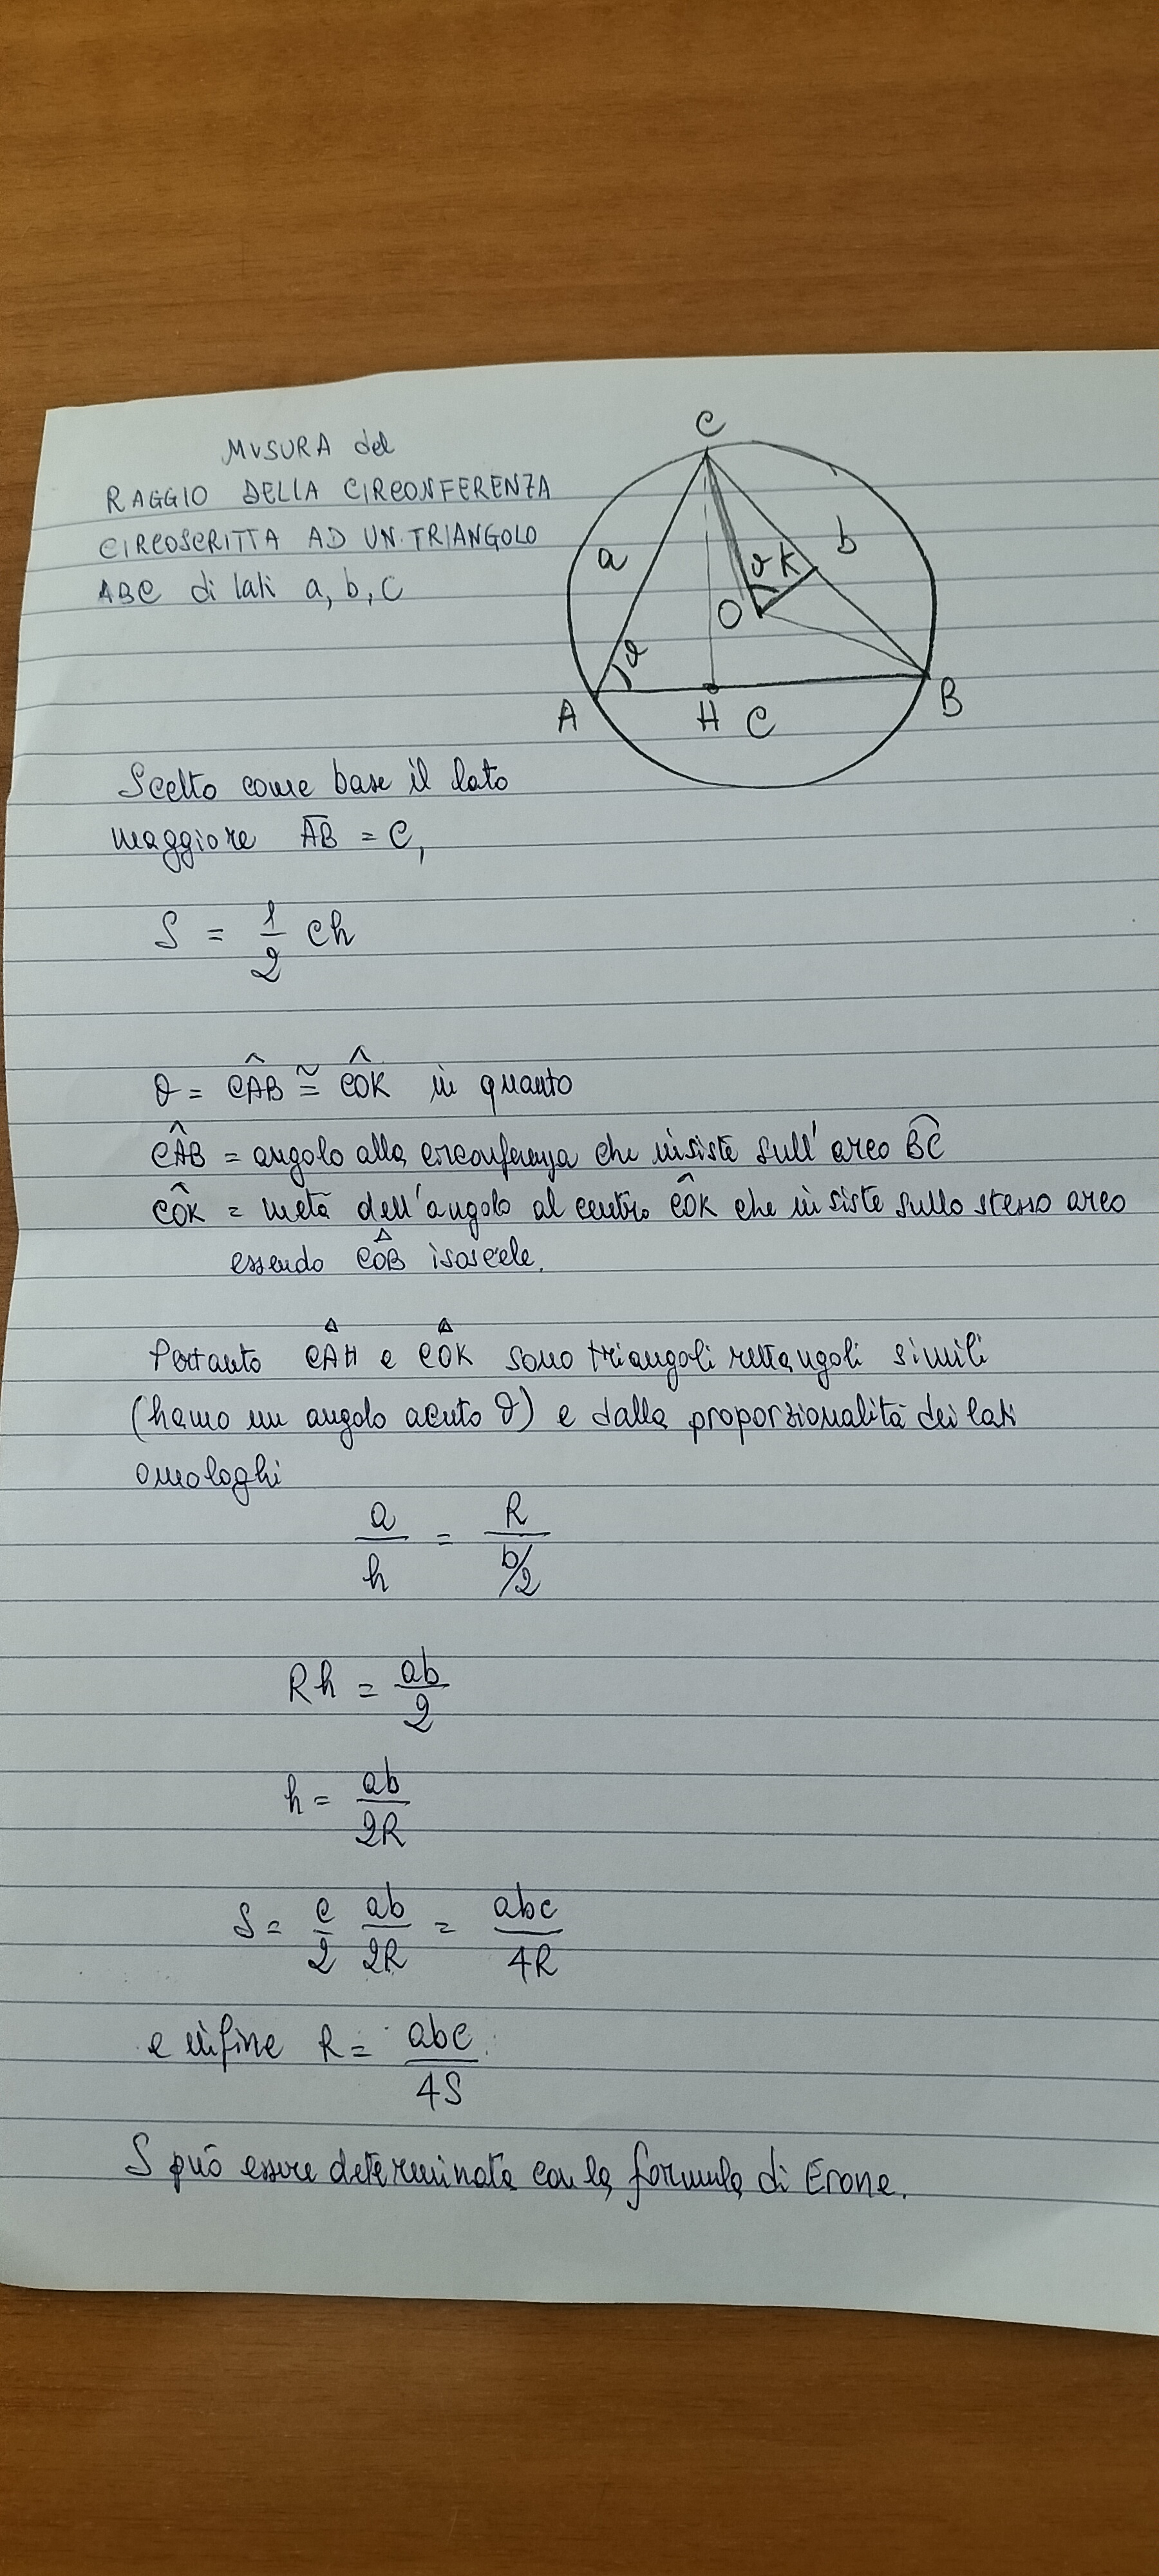 MISURA del
RAGGIO DELLA CIRCONFERENZA
CIRCOSCRITTA AD UN TRIANGOLO
ABC di lati a, b, c
C
a
b
ϑ K
O
ϑ
A
H C
B
Scelto come base il lato
maggiore AB̅ = c,
S = 1/2 ch
ϑ = CÂB ≅ CÔK in quanto
CÂB = angolo alla circonferenza che insiste sull'arco BC
CÔK = metà dell'angolo al centro CÔK che insiste sullo stesso arco
essendo COB isoscele.
Pertanto CAH e COK sono triangoli rettangoli simili
(hanno un angolo acuto ϑ) e dalla proporzionalità dei lati
omologhi
a/h = R/(b/2)
Rh = ab/2
h = ab/2R
S = c/2 ab/2R = abc/4R
e infine R = abc/4S
S può essere determinata con la formula di Erone.